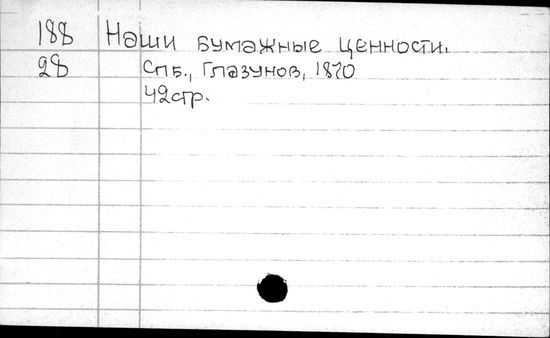 188 Наши бумажные ценности.
28 Спб., Глазунов, 1870
42стр.